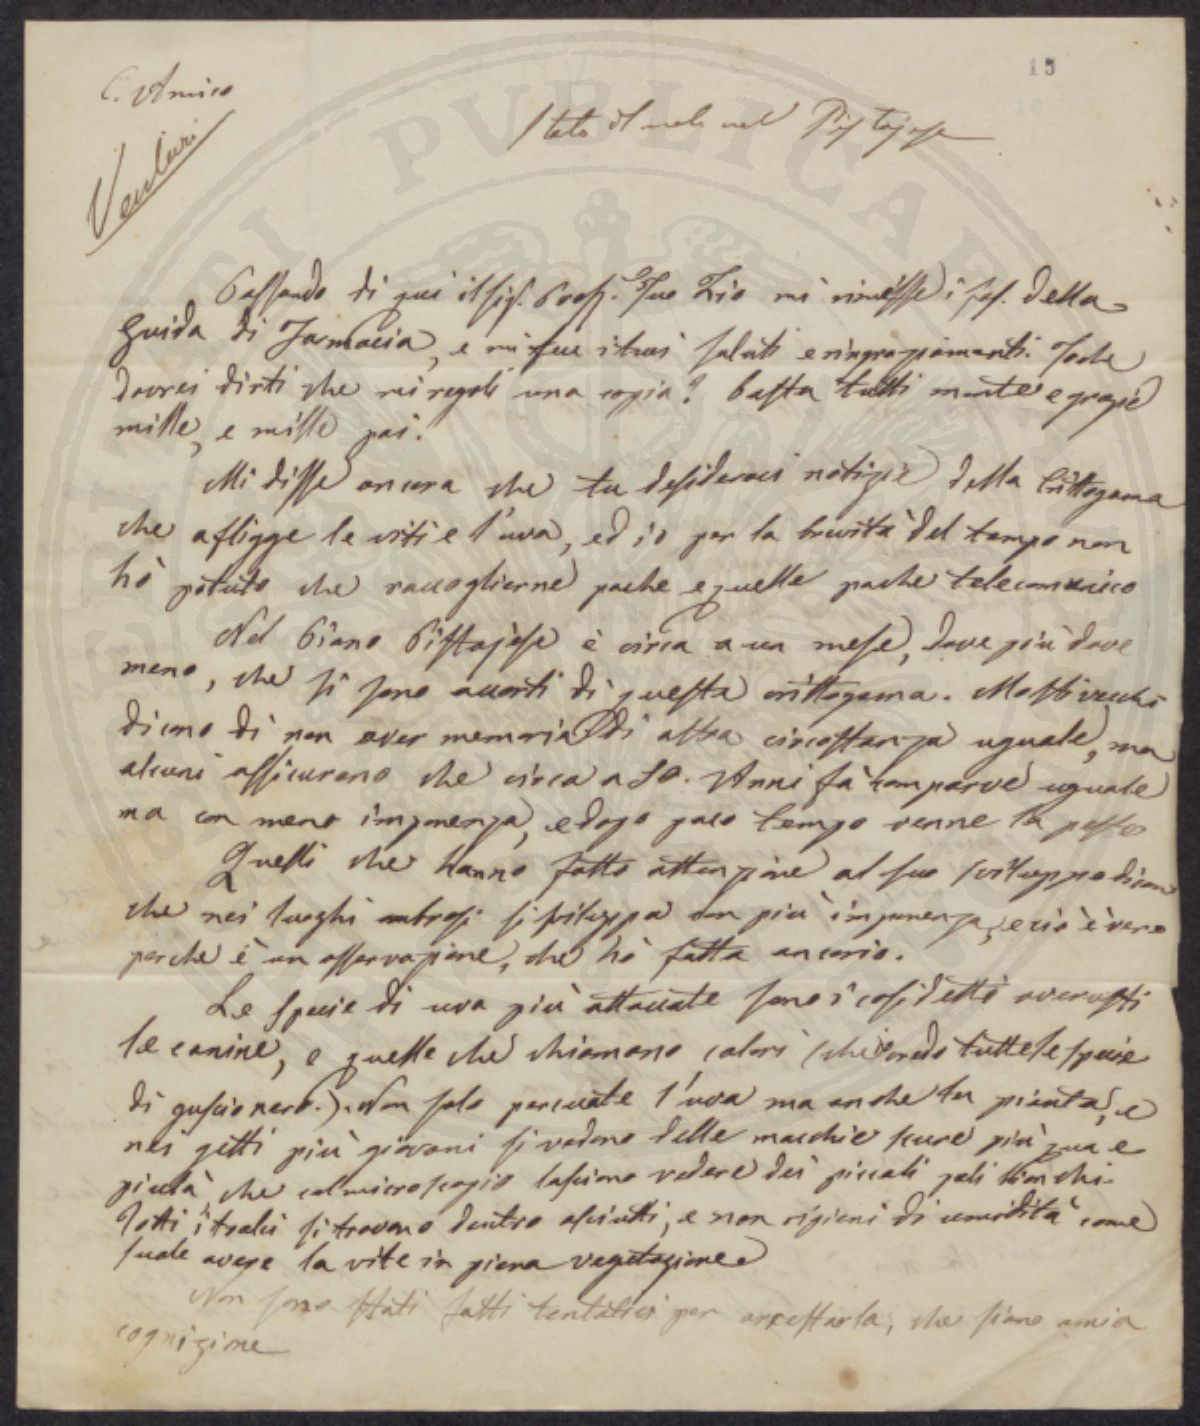 15
C. Amico
Stato del male nel Pistojese
Venturi
Passando di qui il sig. Prof. Tuo Zio mi rimesse i fas. della
Guida di Farmacia, e mi fece i tuoi saluti e ringraziamenti.
dovrei dirti che mi regoli una copia? basta tutti mente e grazie
mille, e mille poi.
Mi disse ancora che tu desideravi notizie della Crittogama
che afligge le viti e l'uva, ed io per la brevità del tempo non
hò potuto che raccoglierne poche e quelle poche te le comunico
Nel Piano Pistojese è circa a un mese, dove più dove
meno, che si sono accorti di questa crittogama. Molti vecchi
dicono di non aver memoria di altra circostanza uguale, ma
alcuni assicurano che circa a 50. Anni fà comparve uguale
ma con meno imponenza, e dopo poco tempo venne la peste
Quelli che hanno fatto attenzione al suo sviluppo dicon
che nei luoghi ombrosi si sviluppa con più imponenza, e ciò è vero
perche è un osservazione, che hò fatta ancorio.
Le specie di uva più attaccate sono i cosidetti
le canine, e quelle che chiamano colori (che credo tutte le specie
di guscio nero.). Non solo percuote l'uva ma anche la pianta, e
nei getti più giovani si vedono delle macchie scure più qua e
più là, che col microscopio lasciano vedere dei piccoli peli bianchi.
Sotti i tralci si trovano dentro asciutti, e non ripieni di umidità come
suole avere la vite in piena vegetazione
Non sono stati fatti tentativi per arrestarla, che siano amia
cognizione